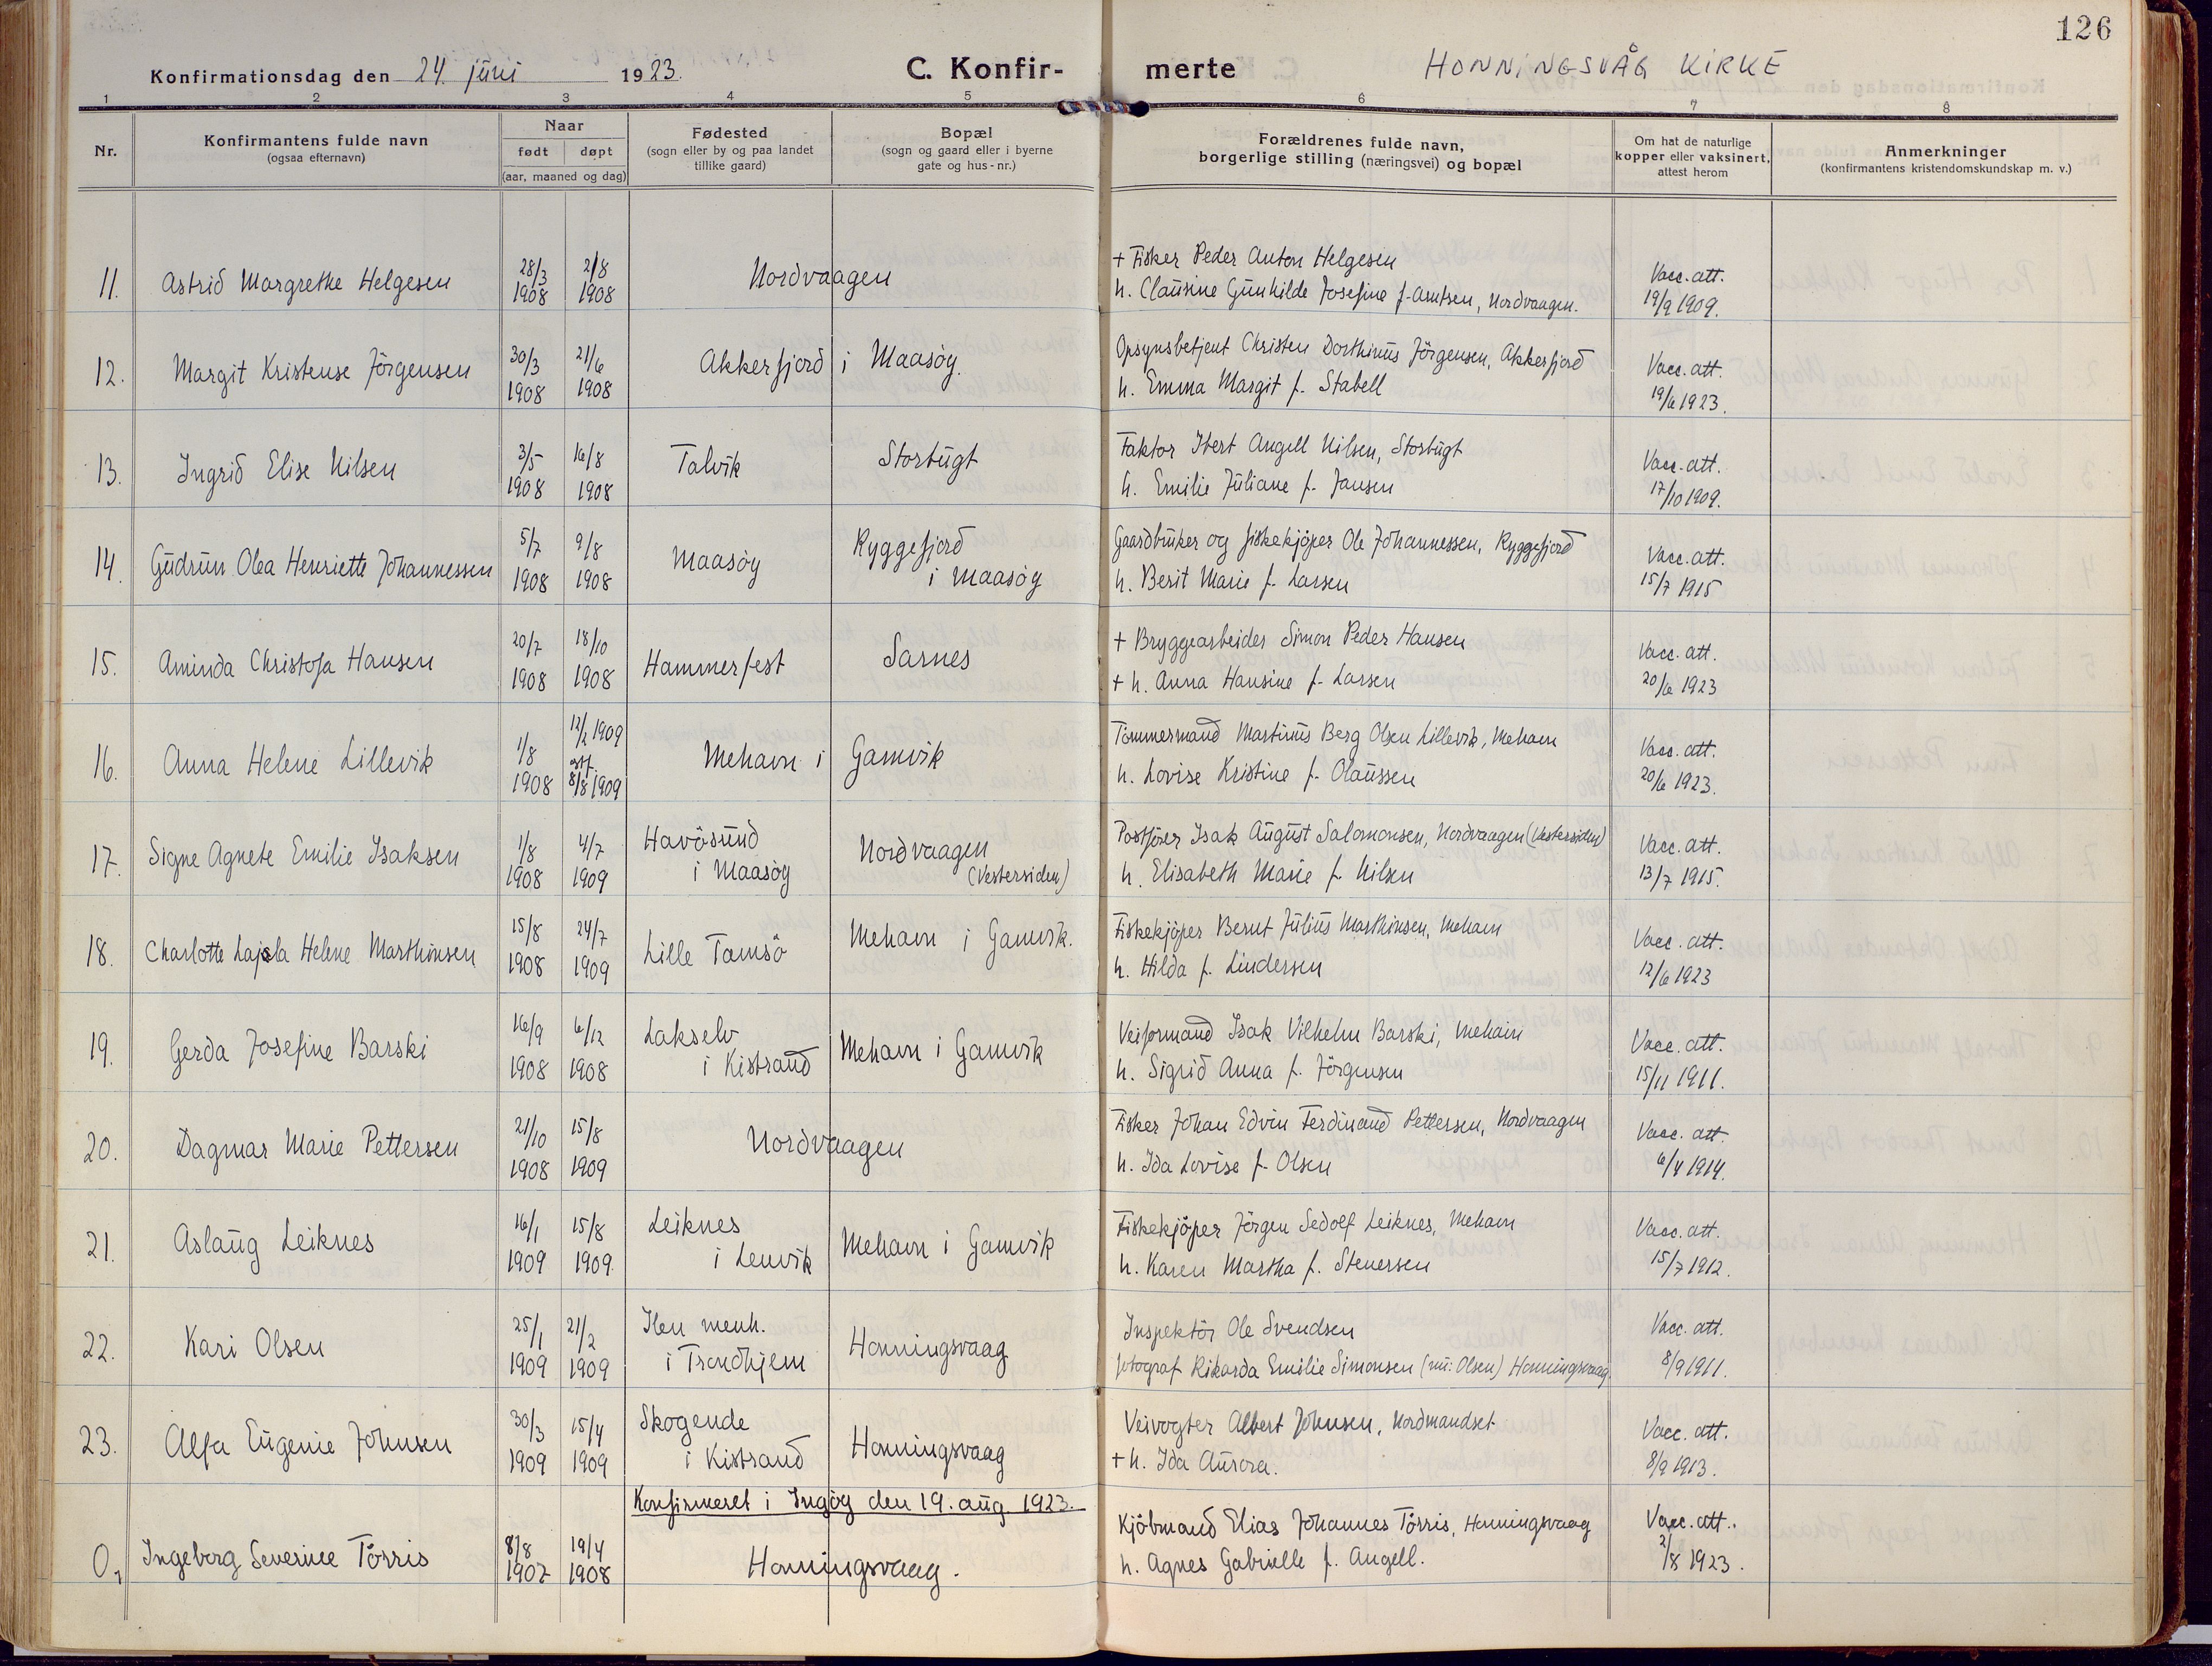 126
Konfirmationsdag den 24. juni 1923.
C. Konfirmerte
HONNINGSVÅG KIRKE
1 2 3 4 5 6 7 8
Nr.
Konfirmantens fulde navn
(ogsaa efternavn)
Naar
født døpt
(aar, maaned og dag)
Fødested
(sogn eller by og paa landet
tillike gaard)
Bopæl
(sogn og gaard eller i byerne
gate og hus-nr.)
Forældrenes fulde navn,
borgerlige stilling (næringsvei) og bopæl
Om hat de naturlige
kopper eller vaksinert,
attest herom
Anmerkninger
(konfirmantens kristendomskundskap m. v.)
11. Astrid Margrethe Helgesen 28/3 1908 2/8 1908 Nordvaagen
+ Fisker Peder Anton Helgesen
h. Clausine Gunhilde Josefine f. Arntsen, Nordvaagen.
Vacc. att.
19/9 1909.
12. Margit Kristense Jörgensen 30/3 1908 21/6 1908 Akkerfjord i Maasöy.
Opsynsbetjent Christen Dorthinus Jörgensen, Akkerfjord
h. Emma Margit f. Stabell
Vacc. att.
19/6 1923.
13. Ingrid Elise Nilsen 3/5 1908 16/8 1908 Talvik Storbugt
Faktor Ibert Angell Nilsen, Storbugt
h. Emilie Juliane f. Jansen
Vacc. att.
17/10 1909.
14. Gudrun Olea Henriette Johannessen 5/7 1908 9/8 1908 Maasöy Ryggefjord
i Maasöy
Gaardbruker og fiskekjöper Ole Johannessen, Ryggefjord
h. Berit Marie f. Larsen
Vacc. att.
15/7 1915
15. Aminda Christofa Hansen 20/7 1908 18/10 1908 Hammerfest Sarnes
+ Bryggearbeider Simon Peder Hansen
+ h. Anna Hansine f. Larsen
Vacc. att.
20/6 1923
16. Anna Helene Lillevik 1/8 1908 12/2 1909 stf. 8/8 1909 Mehavn i Gamvik
Tömmermand Martinus Berg Olsen Lillevik, Mehavn
h. Lovise Kristine f. Olaussen
Vacc. att.
20/6 1923.
17. Signe Agnete Emilie Isaksen 1/8 1908 4/7 1909 Havösund
i Maasöy
Nordvaagen
(Vestersiden)
Postförer Isak August Salomonsen, Nordvaagen (Vestersiden)
h. Elisabeth Marie f. Nilsen
Vacc. att.
13/7 1915.
18. Charlotte Lajela Helene Marthinsen 15/8 1908 24/7 1909 Lille Tamsö Mehavn i Gamvik.
Fiskekjöper Bernt Julius Marthinsen, Mehavn
h. Hilda f. Lindersen
Vacc. att.
12/6 1923
19. Gerda Josefine Barski 16/9 1908 6/12 1908 Lakselv
i Kistrand
Mehavn i Gamvik
Veiformand Isak Vilhelm Barski, Mehavn
h. Sigrid Anna f. Jörgensen
Vacc. att.
15/11 1911.
20. Dagmar Marie Pettersen 21/10 1908 15/8 1909 Nordvaagen
Fisker Johan Edvin Ferdinand Pettersen, Nordvaagen
h. Ida Lovise f. Olsen
Vacc. att.
6/4 1914.
21. Aslaug Leiknes 16/1 1909 15/8 1909. Leiknes
i Lenvik
Mehavn i Gamvik
Fiskekjöper Jörgen Sedolf Leiknes, Mehavn
h. Karen Martha f. Stenersen
Vacc. att.
15/7 1912.
22. Kari Olsen 25/1 1909 21/2 1909 Ilen menh.
i Trondhjem
Honningsvaag
Inspektör Ole Svendsen
fotograf Rikarda Emilie Simonsen (nu: Olsen) Honningsvaag.
Vacc. att.
8/9 1911.
23. Alfa Eugenie Johnsen 30/3 1909 15/4 1909 Skogende
i Kistrand
Honningsvaag
Veivogter Albert Johnsen, Nordmandset
+ h. Ida Aurora.
Vacc. att.
8/9 1913.
Konfirmeret i Ingöy den 19. aug. 1923.
0. Ingeborg Severine Törris 8/8 1907 19/4 1908 Honningsvaag.
Kjöbmand Elias Johannes Törris, Honningsvaag
h. Agnes Gabrielle f. Angell.
Vacc. att.
2/8 1923.